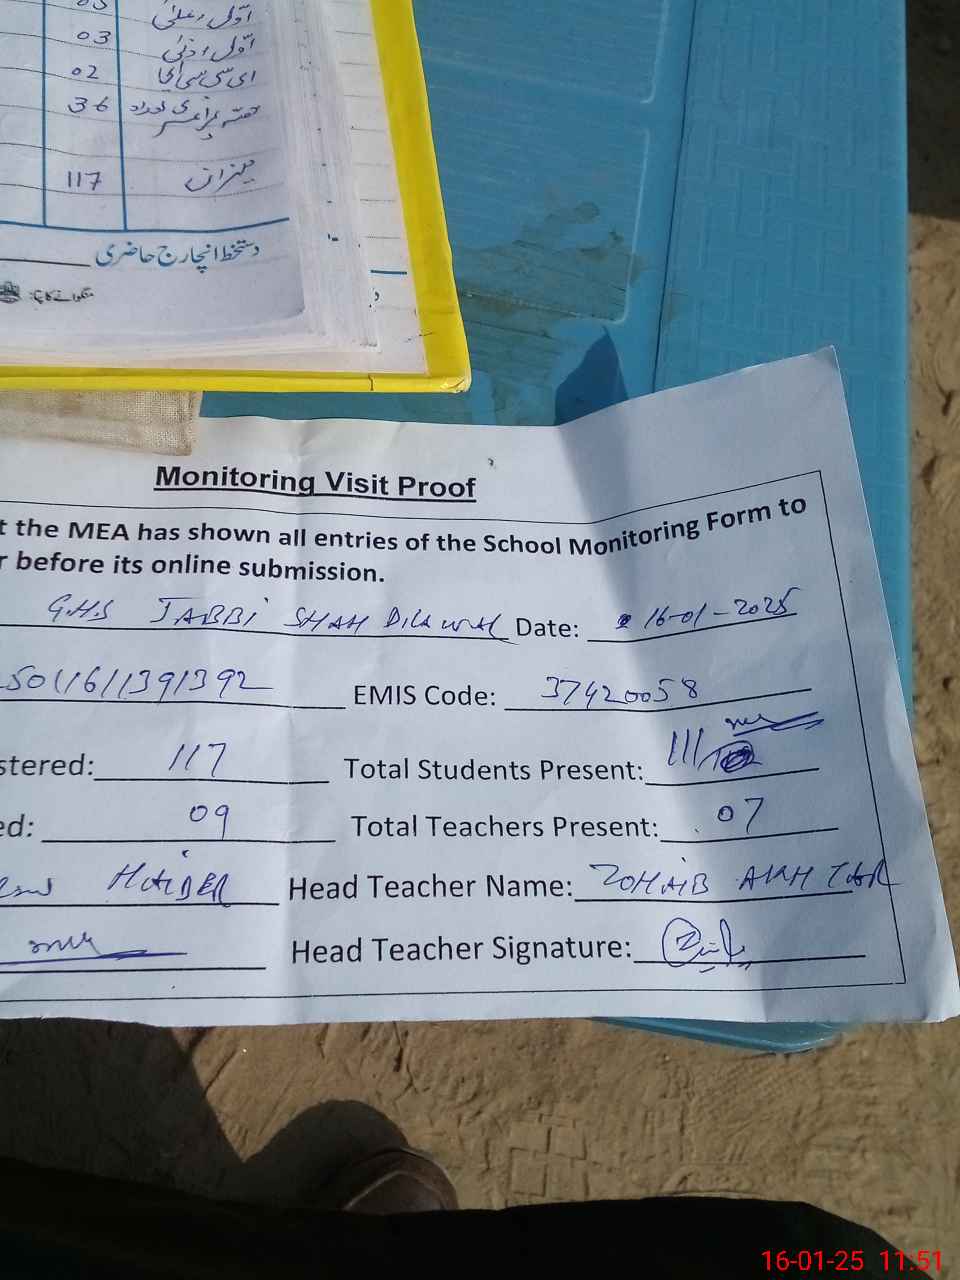 03
اوّل ادنیٰ 03
ای سی سی ای 02
36
میزان 117
دستخط انچارج حاضری
Monitoring Visit Proof
t the MEA has shown all entries of the School Monitoring Form to
r before its online submission.
G.H.S JABBI SHAH DILAWAR Date: 16-01-2025
5011611391392 EMIS Code: 37420058
stered: 117 Total Students Present: 111
ed: 09 Total Teachers Present: 07
HAIDER Head Teacher Name: ZOHAIB AKHTAR
Head Teacher Signature:
16-01-25 11:51